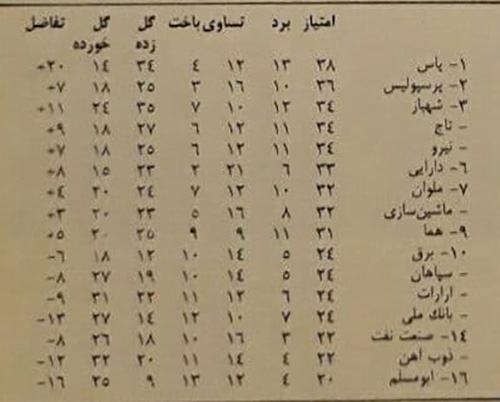 امتیاز برد تساوی باخت گل گل تفاضل
زده خورده
۱- پاس ۳۸ ۱۳ ۱۲ ٤ ۳٤ ۱٤ +۲۰
۲- پرسپولیس ۳٦ ۱۰ ۱٦ ۳ ۲٥ ۱۸ +۷
۳- شهباز ۳٤ ۱۲ ۱۰ ۷ ۳٥ ۲٤ +۱۱
- تاج ۳٤ ۱۱ ۱۲ ٦ ۲۷ ۱۸ +۹
- نیرو ۳٤ ۱۱ ۱۲ ٦ ۲٥ ۱۸ +۷
٦- دارایی ۳۳ ٦ ۲۱ ۲ ۲۳ ۱٥ +۸
۷- ملوان ۳۲ ۱۰ ۱۲ ۷ ۲٤ ۲۰ +٤
- ماشین‌سازی ۳۲ ۸ ۱٦ ٥ ۲۳ ۲۰ +۳
۹- هما ۳۱ ۱۱ ۹ ۹ ۲٥ ۲۰ +٥
۱۰- برق ۲٤ ٥ ۱٤ ۱۰ ۱۲ ۱۸ -٦
- سپاهان ۲٤ ٥ ۱٤ ۱۰ ۱۹ ۲۷ -۸
- آرارات ۲٤ ٦ ۱۲ ۱۱ ۲۲ ۳۱ -۹
- بانک ملی ۲٤ ۷ ۱۰ ۱۲ ۱٤ ۲۷ -۱۳
۱٤- صنعت نفت ۲۲ ۳ ۱٦ ۱۰ ۱۸ ۲٦ -۸
- ذوب آهن ۲۲ ٤ ۱٤ ۱۱ ۲۰ ۳۲ -۱۲
۱٦- ابومسلم ۲۰ ٤ ۱۲ ۱۳ ۹ ۲٥ -۱٦